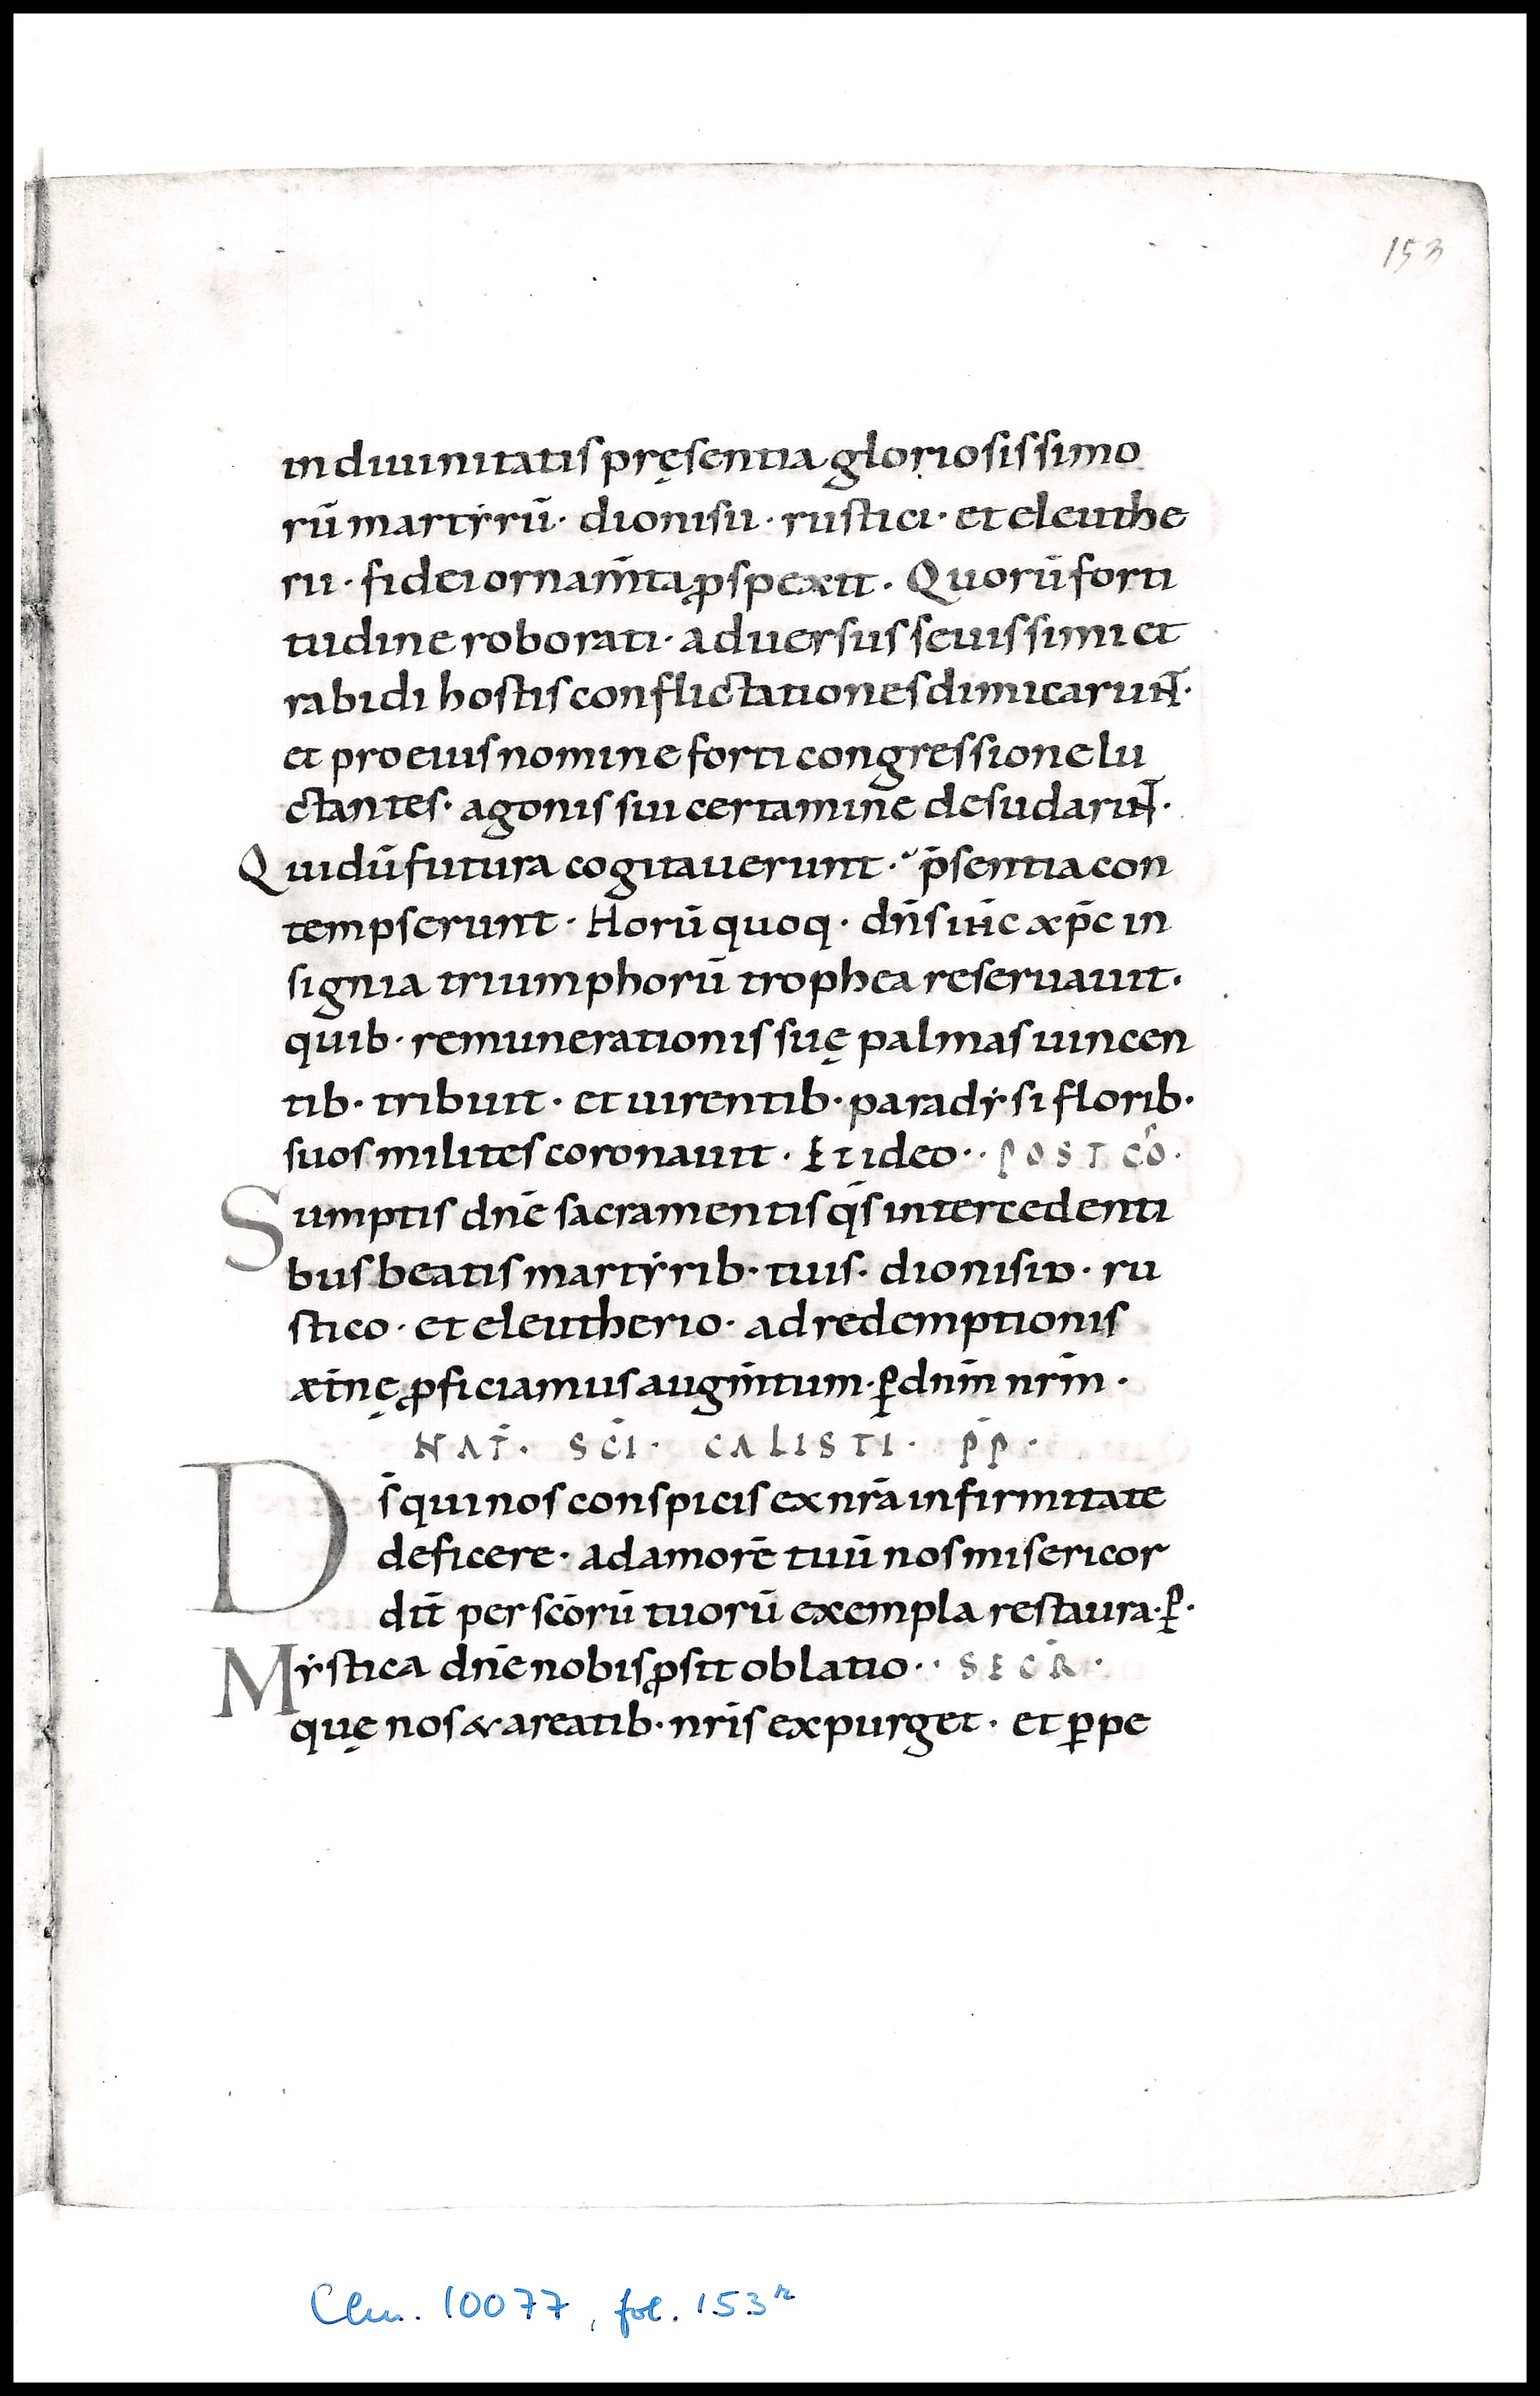 153
in diuinitatis pręsentia gloriosissimo
rū martyrū· dionisii· rustici· et eleuthe
rii· fidei ornam̄ta ꝓspexit· Quorū forti
tudine roborati· aduersus seuissimi et
rabidi hostis conflictationes dimicarunt̄·
et pro eius nomine forti congressione lu
ctantes· agonis sui certamine desudarunt̄·
Qui dū futura cogitauerunt· p̄sentia con
tempserunt· Horū quoq· dn̄s ih̄c xp̄c in
signia triumphorū trophea reseruauit·
quib· remunerationis suę palmas uincen
tib· tribuit· et uirentib· paradẏsi florib·
suos milites coronauit· Et ideo·· POST CŌ·
Sumptis dn̄e sacramentis q̄s intercedenti
bus beatis martẏrib· tuis· dionisio· ru
stico· et eleutherio· ad redemptionis
ęt̄nę ꝓficiamus augm̄tum· ꝑ dn̄m nr̄m·
NAT̄· SC̄I· CALISTI· P̄P·
D̄s qui nos conspicis ex nr̄a infirmitate
deficere· ad amorē tuū nos misericor
dit̄ per sc̄orū tuorū exempla restaura· ꝑ·
Mẏstica dn̄e nobis ꝓsit oblatio·· SECR̄·
quę nos & a reatib· nr̄is expurget· et ꝑpe
Clm. 10077, fol. 153r